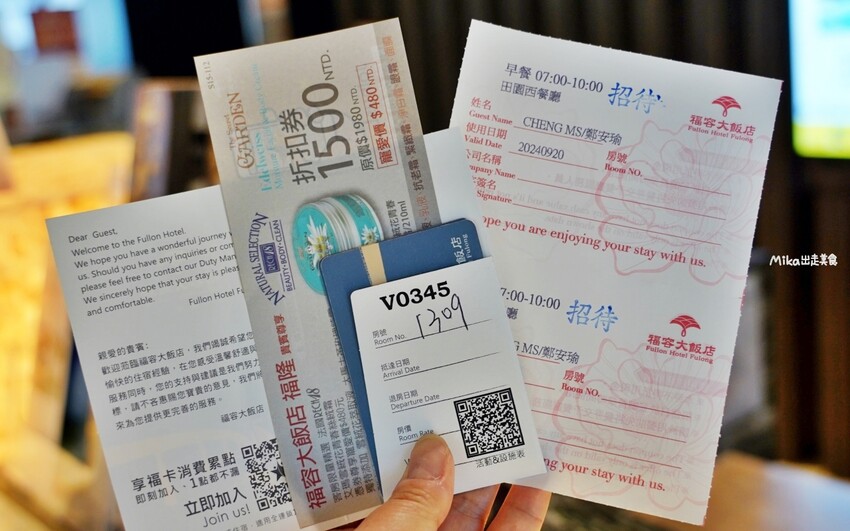 Dear Guest,
Welcome to the Fullon Hotel.
We hope you have a wonderful journey
us. Should you have any inquiries or
please feel free to contact our Duty
We sincerely hope that your stay is
and comfortable.
Fullon Hotel
親愛的貴賓：
歡迎蒞臨福容大飯店，我們竭誠希望您
愉快的住宿經驗，在您感受溫馨舒適
服務同時，您的支持與建議是我們努力
標，請不吝惠賜您寶貴的意見，我們
來為您提供更完善的服務。
福容大飯店
享福卡消費累點
即刻加入，1點都不漏
立即加入
Join us!
The Secret
GARDEN
Edelweiss
折扣券
1500 NTD.
原價$1980 NTD.
寵愛價$480 NTD.
NATURAL SELECTION
BEAUTY·BODY·CLEAN
/210ml
福容大飯店 福隆 貴賓尊享
飯店
Fulong
V0345
房號
Room No.
1309
抵達日期
Arrival Date
退房日期
Departure Date
房價
Room Rate
早餐 07:00-10:00
田園西餐廳
招待
福容大飯店
Fullon Hotel Fulong
姓名
Guest Name
CHENG MS/鄭安瑜
使用日期
Valid Date
20240920
房號
Room NO.
公司名稱
Company Name
Signature
ope you are enjoying your stay with us.
07:00-10:00
招待
福容大飯店
Fullon Hotel Fulong
MS/鄭安瑜
房號
Room NO.
enjoying your stay with us.
Mika出走美食